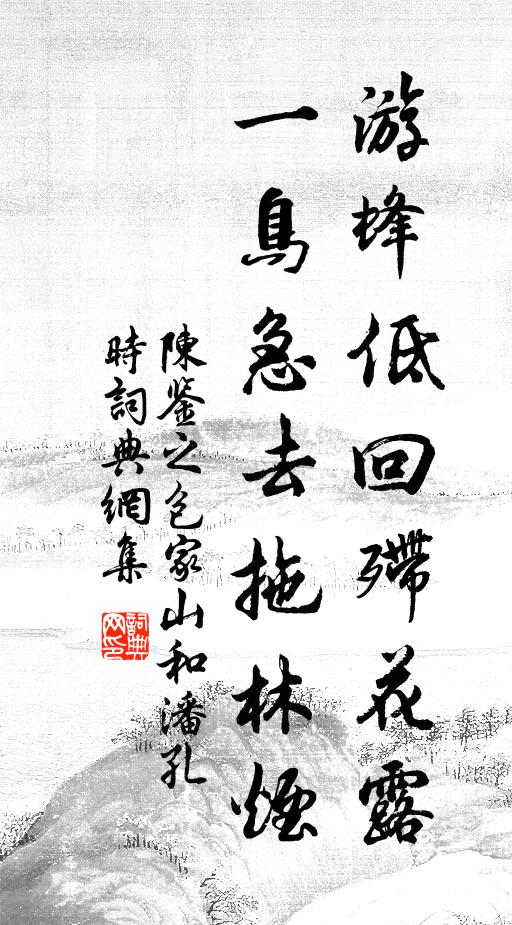 游蜂低回殢花露
一鳥急去拖林煙
陳鑒之包家山和潘孔
時詞典網集
詞典网印